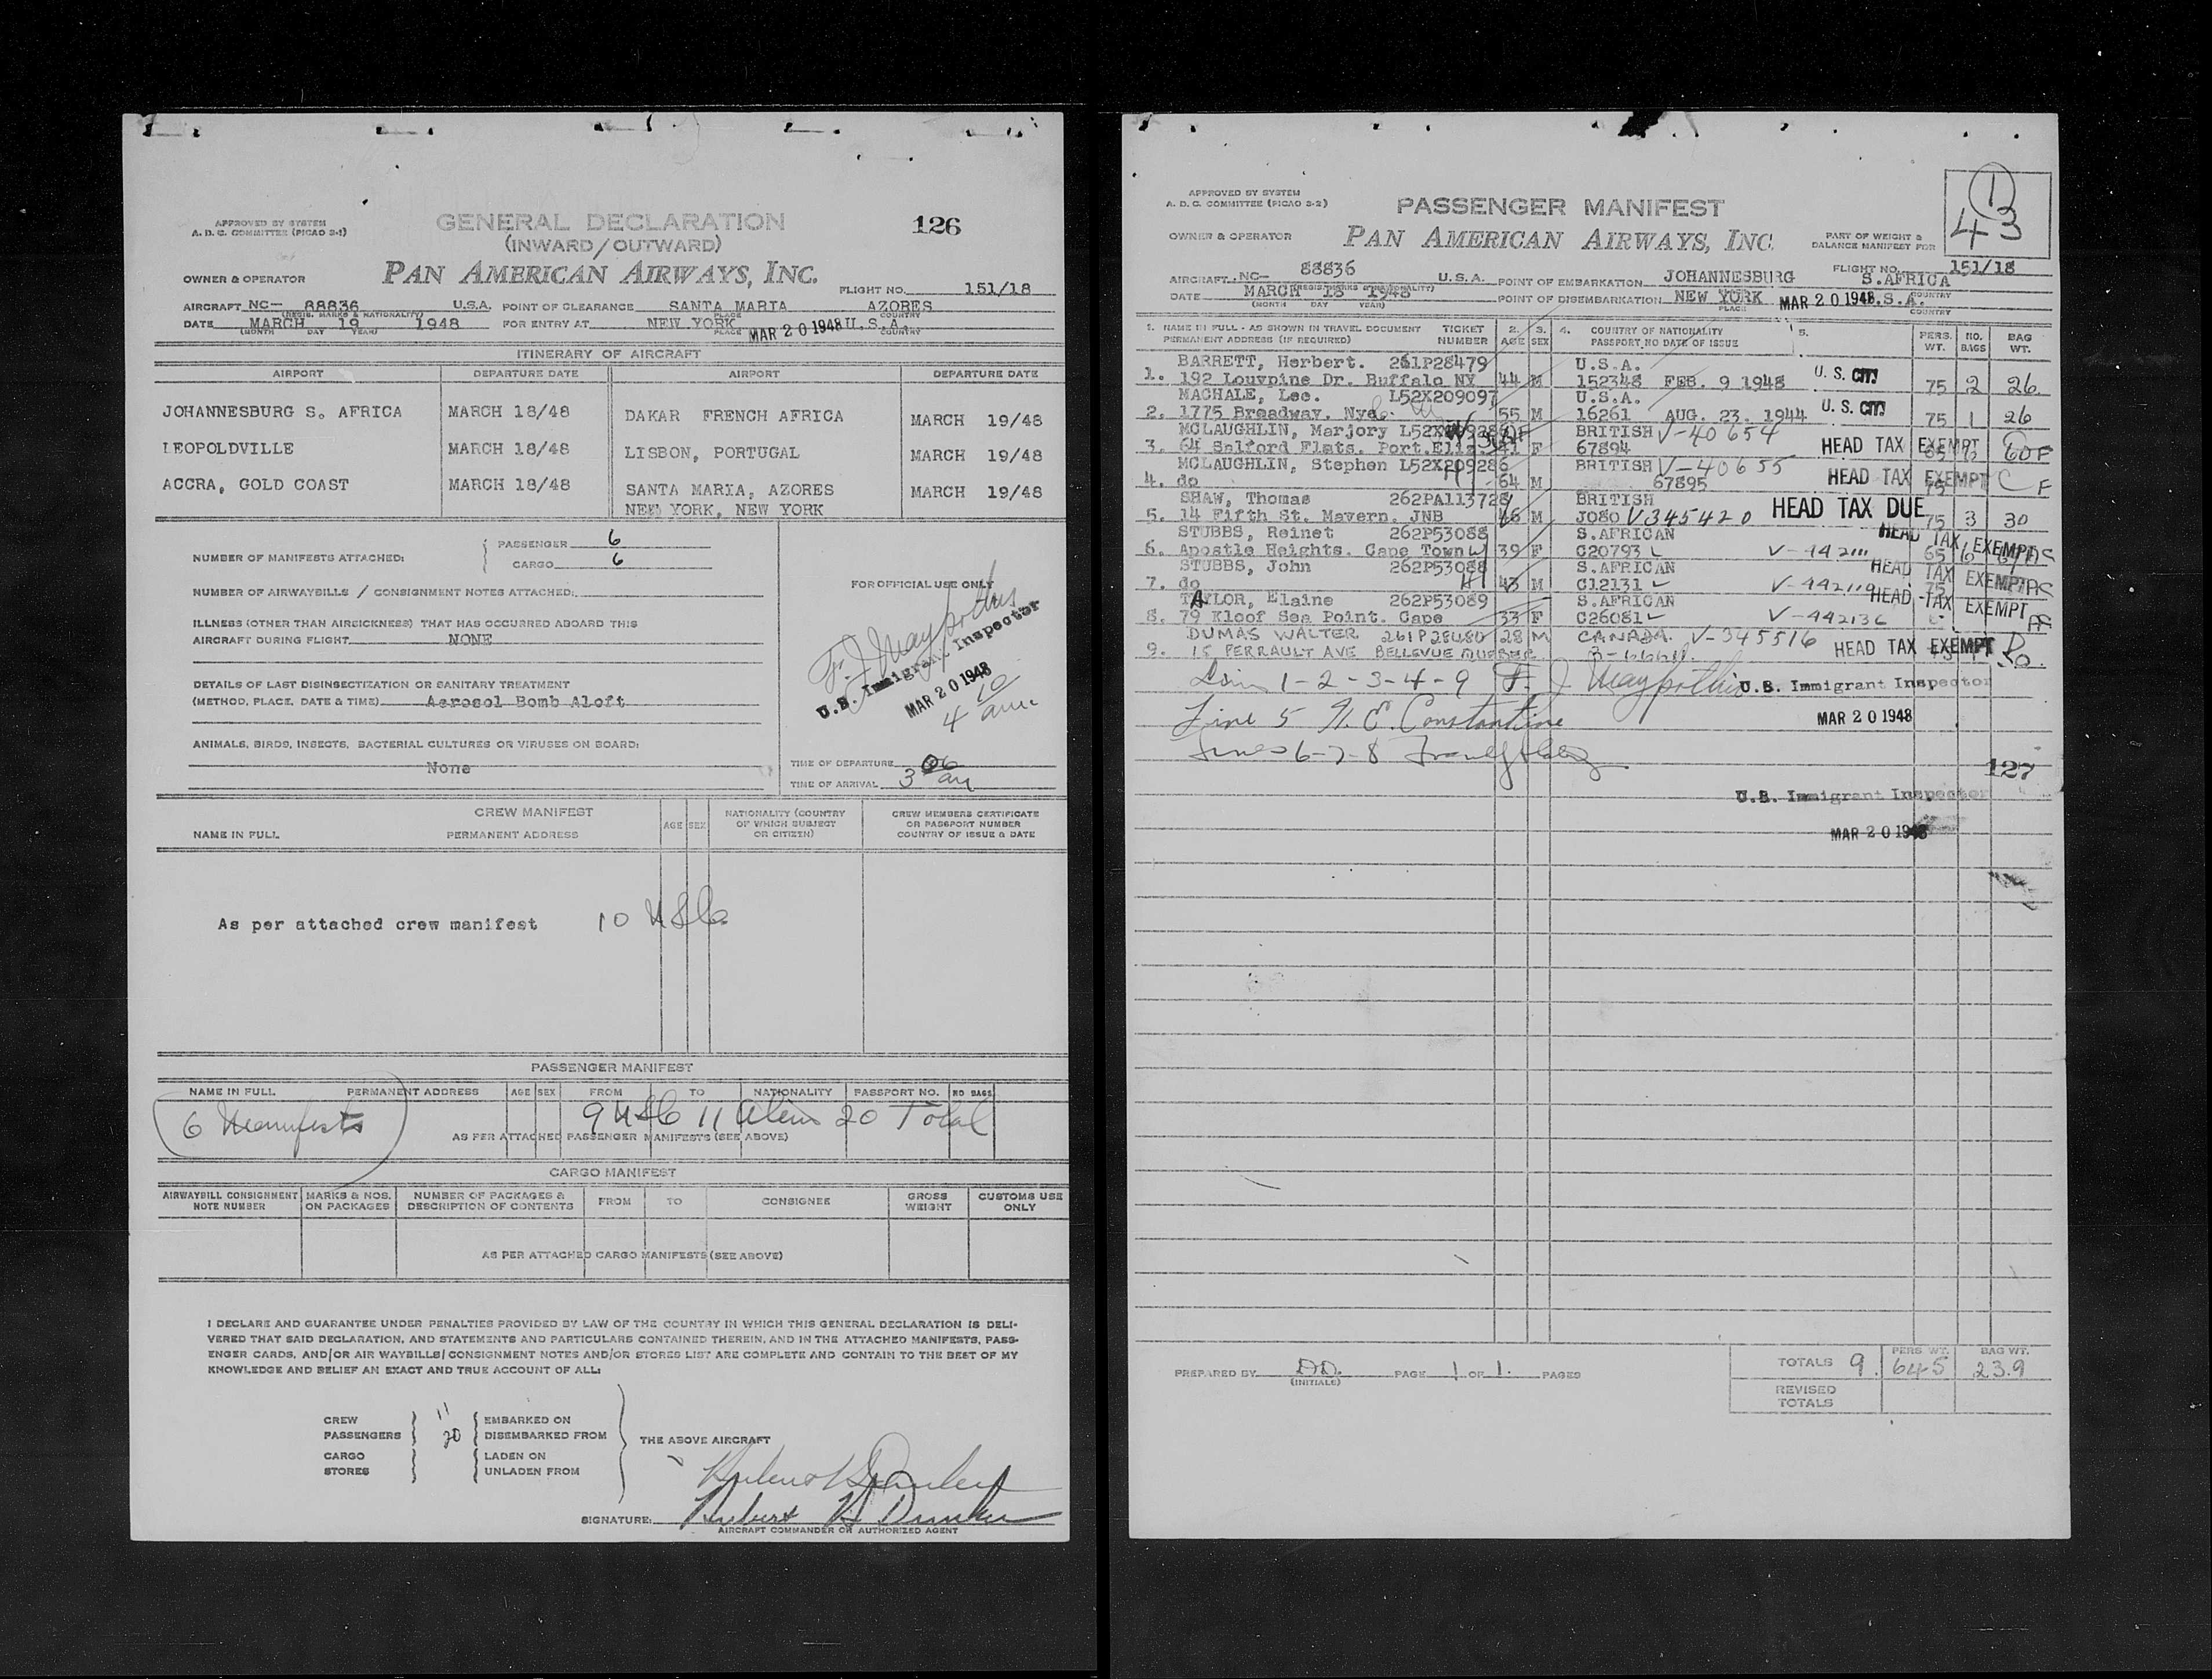 APPROVED BY SYSTEM
A. D. C. COMMITTEE (PICAO 3-1)
GENERAL DECLARATION
(INWARD/OUTWARD)
126
OWNER & OPERATOR
PAN AMERICAN AIRWAYS, INC.
FLIGHT NO. 151/18
AIRCRAFT NC- 88836 U.S.A. POINT OF CLEARANCE SANTA MARIA AZORES
(REGIS. MARKS & NATIONALITY) PLACE COUNTRY
DATE MARCH 19 1948 FOR ENTRY AT NEW YORK MAR 20 1948 U.S.A.
(MONTH DAY YEAR) PLACE COUNTRY
ITINERARY OF AIRCRAFT
AIRPORT DEPARTURE DATE AIRPORT DEPARTURE DATE
JOHANNESBURG S. AFRICA MARCH 18/48 DAKAR FRENCH AFRICA MARCH 19/48
LEOPOLDVILLE MARCH 18/48 LISBON, PORTUGAL MARCH 19/48
ACCRA, GOLD COAST MARCH 18/48 SANTA MARIA, AZORES MARCH 19/48
NEW YORK, NEW YORK
NUMBER OF MANIFESTS ATTACHED: PASSENGER 6
CARGO 6
FOR OFFICIAL USE ONLY
NUMBER OF AIRWAYBILLS / CONSIGNMENT NOTES ATTACHED:
ILLNESS (OTHER THAN AIRSICKNESS) THAT HAS OCCURRED ABOARD THIS
AIRCRAFT DURING FLIGHT NONE
U.S. Immigrant Inspector
MAR 20 1948
4 10 am.
DETAILS OF LAST DISINSECTIZATION OR SANITARY TREATMENT
(METHOD, PLACE, DATE & TIME) Aerosol Bomb Aloft
ANIMALS, BIRDS, INSECTS, BACTERIAL CULTURES OR VIRUSES ON BOARD:
None
TIME OF DEPARTURE
TIME OF ARRIVAL 3 06 am
CREW MANIFEST
NAME IN FULL PERMANENT ADDRESS AGE SEX NATIONALITY (COUNTRY OF WHICH SUBJECT OR CITIZEN) CREW MEMBERS CERTIFICATE OR PASSPORT NUMBER COUNTRY OF ISSUE & DATE
As per attached crew manifest 10 USC
PASSENGER MANIFEST
NAME IN FULL PERMANENT ADDRESS AGE SEX FROM TO NATIONALITY PASSPORT NO. NO BAGS
6 Manifests 9 USC 11 Aliens 20 Total
AS PER ATTACHED PASSENGER MANIFESTS (SEE ABOVE)
CARGO MANIFEST
AIRWAYBILL CONSIGNMENT NOTE NUMBER MARKS & NOS. ON PACKAGES NUMBER OF PACKAGES & DESCRIPTION OF CONTENTS FROM TO CONSIGNEE GROSS WEIGHT CUSTOMS USE ONLY
AS PER ATTACHED CARGO MANIFESTS (SEE ABOVE)
I DECLARE AND GUARANTEE UNDER PENALTIES PROVIDED BY LAW OF THE COUNTRY IN WHICH THIS GENERAL DECLARATION IS DELI-
VERED THAT SAID DECLARATION, AND STATEMENTS AND PARTICULARS CONTAINED THEREIN, AND IN THE ATTACHED MANIFESTS, PASS-
ENGER CARDS, AND/OR AIR WAYBILLS/CONSIGNMENT NOTES AND/OR STORES LIST ARE COMPLETE AND CONTAIN TO THE BEST OF MY
KNOWLEDGE AND BELIEF AN EXACT AND TRUE ACCOUNT OF ALL:
CREW 11 EMBARKED ON
PASSENGERS 20 DISEMBARKED FROM
THE ABOVE AIRCRAFT
CARGO LADEN ON
STORES UNLADEN FROM
SIGNATURE:
AIRCRAFT COMMANDER OR AUTHORIZED AGENT
APPROVED BY SYSTEM
A. D. C. COMMITTEE (PICAO 3-2)
PASSENGER MANIFEST
1
43
OWNER & OPERATOR
PAN AMERICAN AIRWAYS, INC.
PART OF WEIGHT &
BALANCE MANIFEST FOR
FLIGHT NO. 151/18
AIRCRAFT NC- 88836 U.S.A. POINT OF EMBARKATION JOHANNESBURG S.AFRICA
(REGIS. MARKS & NATIONALITY) COUNTRY
DATE MARCH 18 1948 POINT OF DISEMBARKATION NEW YORK MAR 20 1948 .S.A.
(MONTH DAY YEAR) PLACE COUNTRY
1. NAME IN FULL - AS SHOWN IN TRAVEL DOCUMENT TICKET 2. 3. 4. COUNTRY OF NATIONALITY 5. PERS. NO. BAG
PERMANENT ADDRESS (IF REQUIRED) NUMBER AGE SEX PASSPORT NO DATE OF ISSUE WT. BAGS WT.
BARRETT, Herbert. 261P28479 U.S.A.
1. 192 Louvpine Dr. Buffalo NY 44 M 152348 FEB. 9 1948 U. S. CIT 75 2 26.
MACHALE, Leo. L52X209097 U.S.A.
2. 1775 Broadway. Nyc. 55 M 16261 AUG. 23. 1944 U. S. CIT 75 1 26
MCLAUGHLIN, Marjory BRITISH V-40654
3. 64 Salford Flats. Port.Eliz. 41 F 67894 HEAD TAX EXEMPT 65
MCLAUGHLIN, Stephen L52X209286 BRITISH V-40655
4. do 64 M 67895 HEAD TAX EXEMPT 75
SHAW, Thomas 262PA113728 BRITISH
5. 14 Fifth St. Mavern. JNB 46 M J080 V345420 HEAD TAX DUE 75 3 30
STUBBS, Reinet 262P53088 S.AFRICAN
6. Apostle Heights. Cape Town W 39 F C20793 V-442111 HEAD TAX EXEMPT 65
STUBBS, John 262P53088 S.AFRICAN
7. do H 43 M C12131 V-442119 HEAD TAX EXEMPT 75
TAYLOR, Elaine 262P53089 S.AFRICAN
8. 79 Kloof Sea Point. Cape 33 F C26081 V-442136 HEAD TAX EXEMPT
DUMAS WALTER 261P28480 28 M CANADA. V-345516
9. 15 PERRAULT AVE BELLEVUE QUEBEC. HEAD TAX EXEMPT
Lines 1-2-3-4-9 U.S. Immigrant Inspector
Line 5 N. E. Constantine MAR 20 1948
Lines 6-7-8
127
U.S. Immigrant Inspector
MAR 20 1948
PREPARED BY DD. PAGE 1 OF 1. PAGES
(INITIALS)
TOTALS 9. PERS. WT. 645 BAG WT. 239
REVISED
TOTALS